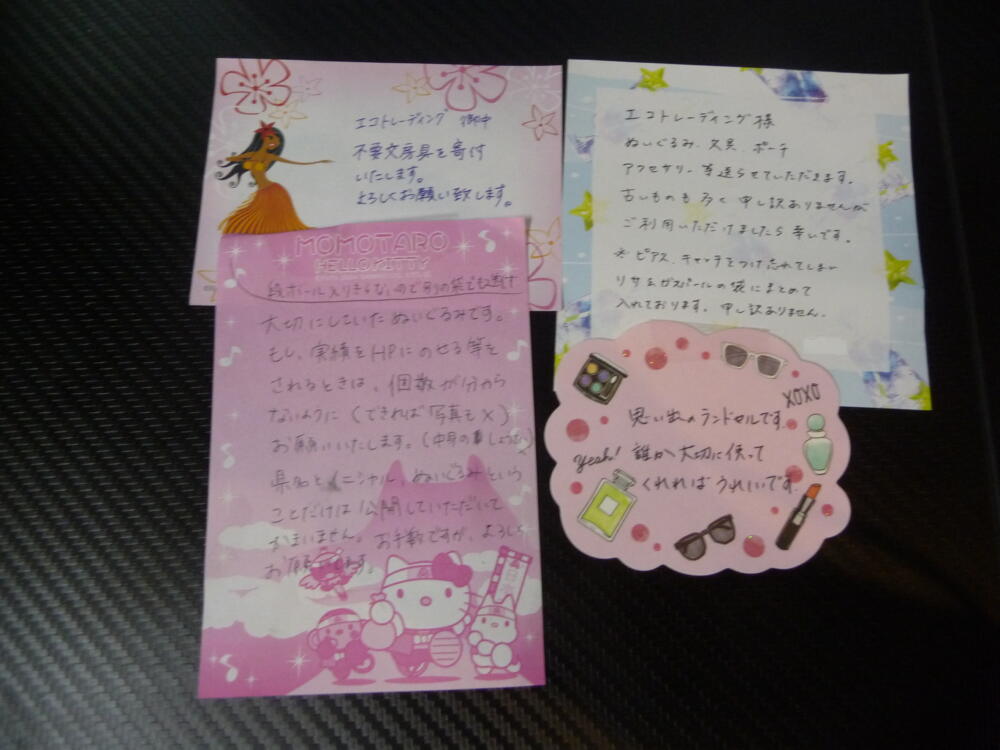 エコトレーディング 御中
不要文房具を寄付
いたします。
よろしくお願い致します。
エコトレーディング様
ぬいぐるみ、文具、ポーチ
アクセサリー 等送らせていただきます。
古いものも多く 申し訳ありませんが
ご利用いただけましたら幸いです。
* ピアス、キャッチをつけ忘れてしまい
リサとガスパールの袋にまとめて
入れております。申し訳ありません。
MOMOTARO
HELLO KITTY
段ボール入りきらないので別の袋でも送ります
大切にしていたぬいぐるみです。
もし、実績をHPにのせる等を
されるときは、個数が分から
ないように（できれば写真も×）
お願いいたします。（中身の
県名とイニシャル、ぬいぐるみという
ことだけは公開していただいて
かまいません。お手数ですが、よろしく
お願いします。
XOXO
思い出のランドセルです。
Yeah! 誰か大切に使って
くれればうれしいです。